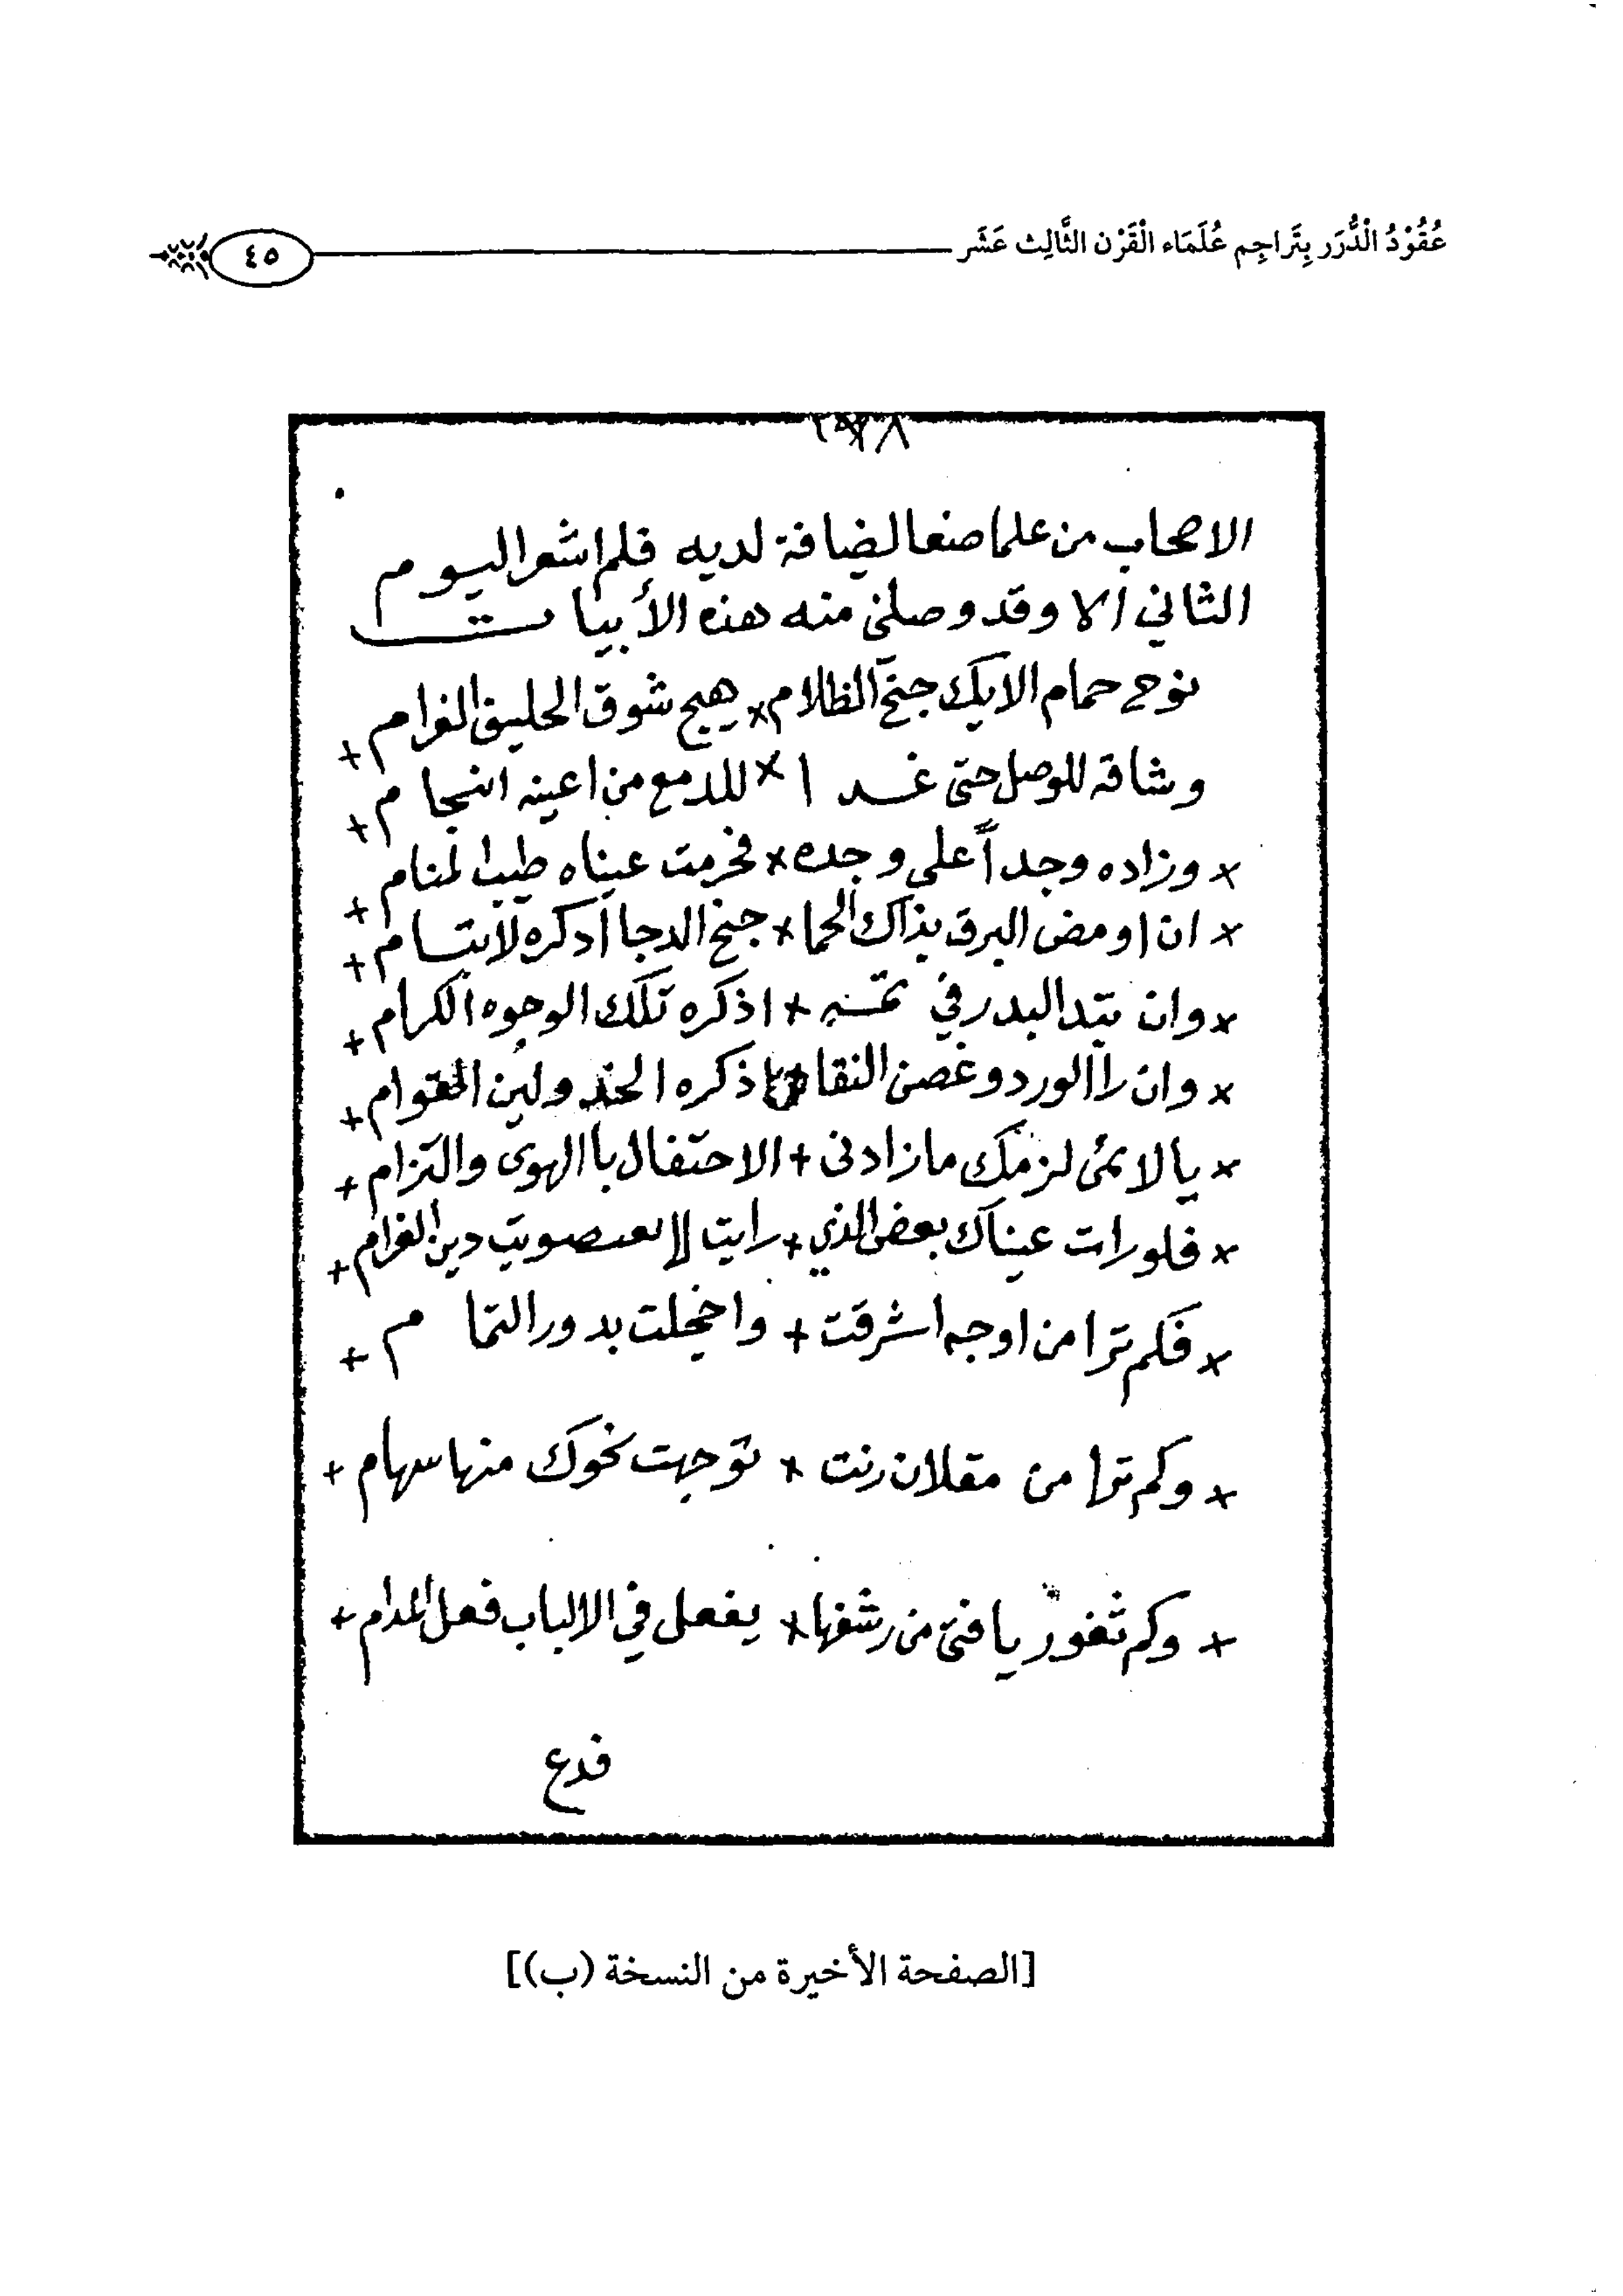 عُقُوْدُ الْدُّرَر بِتَراجِم عُلَمَاء الْقَرْن الثَّالِث عَشَر
٤٥
الاصحاب من علما صنعا لضيافة لديه فلم اشعر اليوم
الثاني الا وقد وصلني منه هذه الأبيات
نوح حمام الايك جنح الظلام × هيج شوق الحليف الغرام +
وشاقه للوصل حتى غدا × للدمع من اعينه انسجام +
× وزاده وجداً على وجده × فحرمت عيناه طيب المنام +
× ان اومض البرق بذاك الحما × جنح الدجا أدكره لابتسام +
× وان تبدا البدر في + اذكره تلك الوجوه الكرام +
× وان راا الورد وغصن النقا اذكره الخد ولين القوام +
× يا لائمى لزمك ما زادنى + الا حتفال باالهوى والتزام +
× فلو رات عيناك بعض الذي + رايت دين الغرام +
× فكم ترا من اوجه اشرقت + واخجلت بدور التمام +
× وكم ترا من مقلات رنت × توجهت نحوك منها سهام +
+ وكم ثغور يا فتى من رشفها × يفعل في الالباب فعل المدام +
[الصفحة الأخيرة من النسخة (ب)]